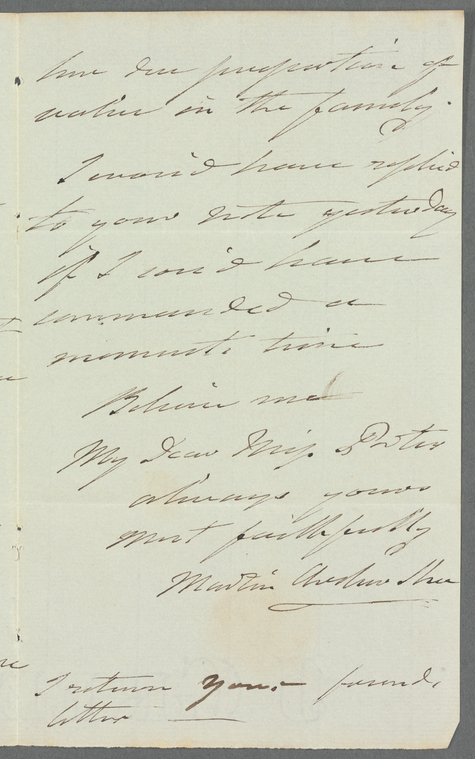 have due proportion of
value in the family.
I wou'd have replied
to your note yesterday
if I cou'd have
commanded a
moments time
Believe me
My dear Miss Porter
always yours
most faithfully
Martin Archer Shee
I return your friends
letter —